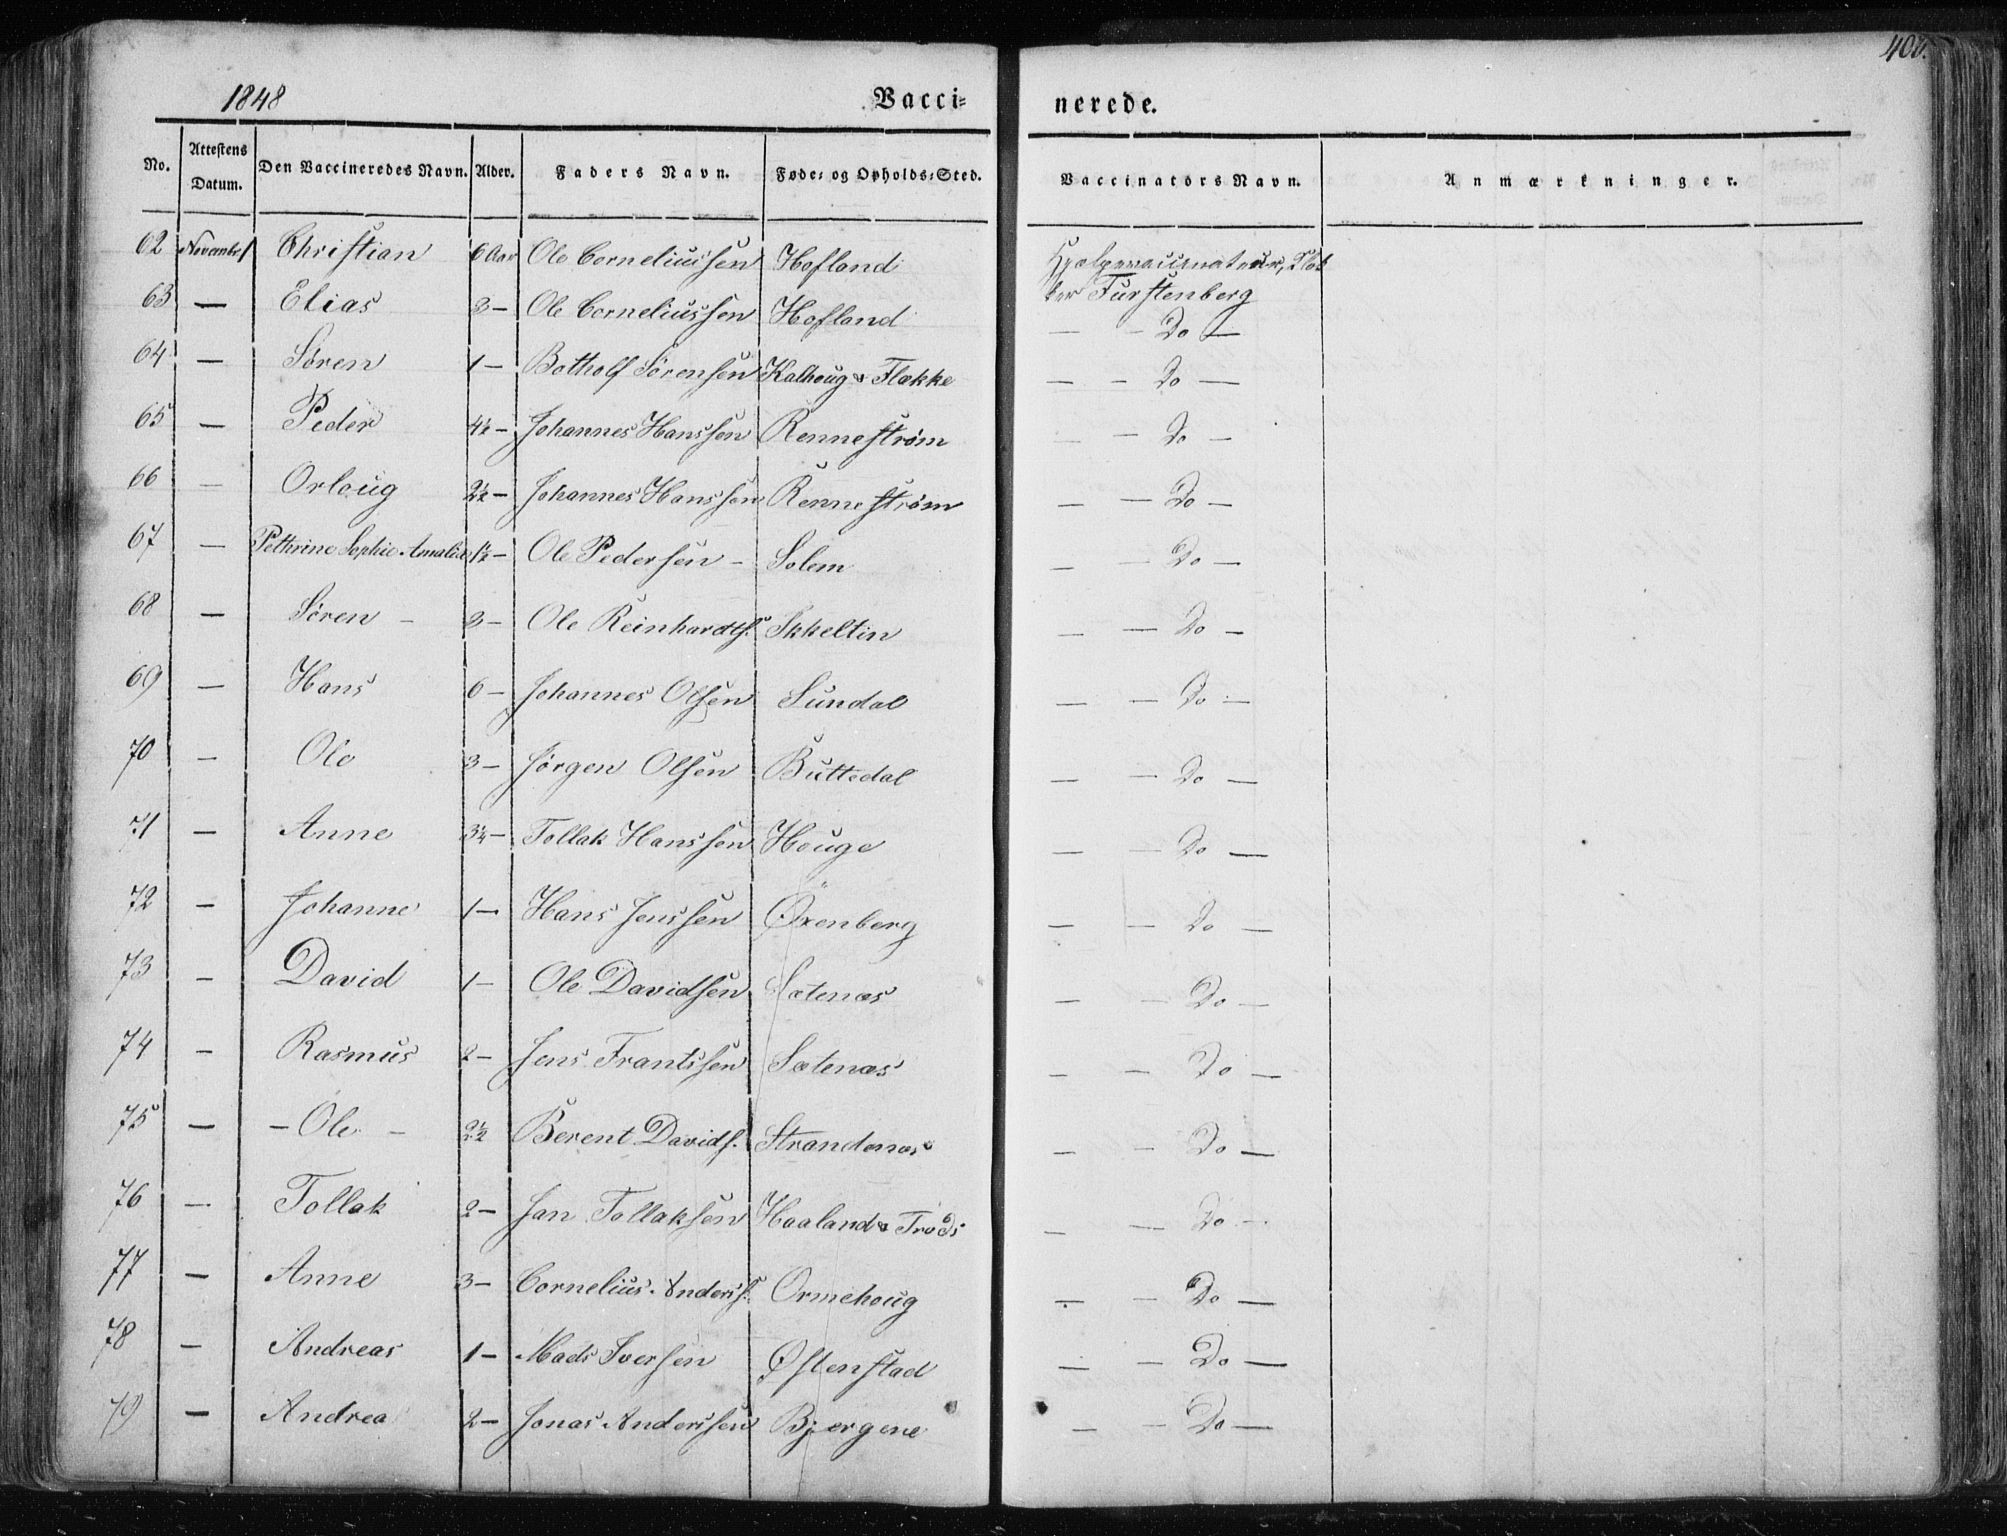 400.
1848 Vacci= nerede.
No. Attestens Datum. Den Vaccineredes Navn. Alder. Faders Navn. Føde= og Opholds=Sted. Vaccinators Navn. Anmærkninger.
62 November Christian 6 Aar Ole Corneliussen Hofland
ker Furstenberg
63 — Elias 3 — Ole Corneliussen Hofland — — Do —
64 — Søren 1 — Botholf Sørensen Kalhoug & Flække — — Do —
65 — Peder 4½ — Johannes Hanssen Rennestrøm — — Do —
66 — Orloug 2½ — Johannes Hanssen Rennestrøm — — Do —
67 — Pethrine Sophie Amalia 1½ — Ole Pedersen — Solem — — Do —
68 — Søren — 3 — Ole Reinhardts. Skkeltin — — Do —
69 — Hans 6 — Johannes Olsen Sundal — — Do —
70 — Ole 3 — Jørgen Olsen Buttedal — — Do —
71 — Anne 3¼ — Tollak Hanssen Houge — — Do —
72 — Johanne 1 — Hans Jenssen Øxenberg — — Do —
73 — David 1 — Ole Davidsen Sætenæs — — Do —
74 — Rasmus 2 — Jens Frantssen Sætenæs — — Do —
75 — — Ole — 2½ Berent Davids. Strandenæs — — Do —
76 — Tollak 2 — Jan Tollaksen Haaland & — — Do —
77 — Anne 3 — Cornelius Anders. Ormehoug — — Do —
78 — Andreas 1 — Mads Iversen Østenstad — — Do —
79 — Andrea 2 — Jonas Anderssen Bjergene — — Do —